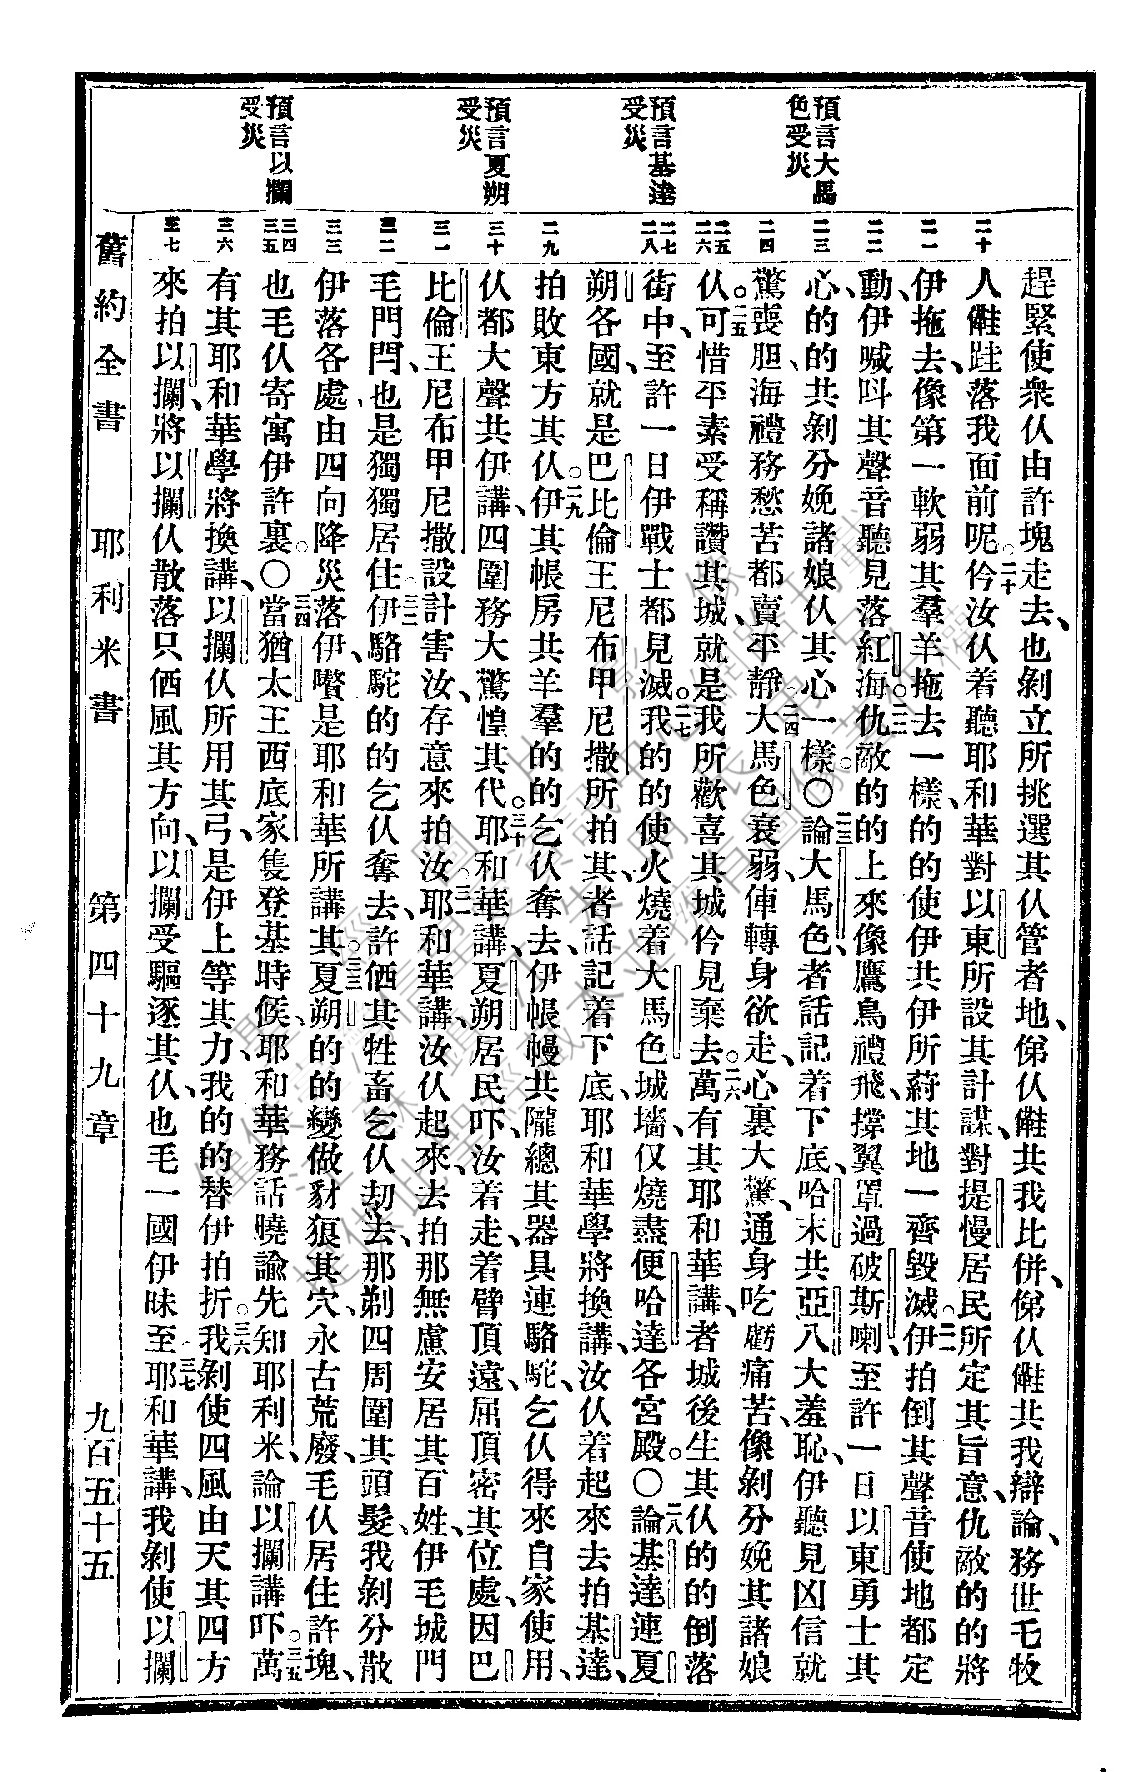 預言大馬
色受災
預言基達
受災
預言夏朔
受災
預言以攔
受災
趕緊使衆伩由許塊走去、也剝立所挑選其伩管者地、俤伩儺共我比併、俤伩儺共我辯論、務世乇牧
人儺跬落我面前呢。二十仱汝伩着聽耶和華對以東所設其計謀、對提慢居民所定其旨意、仇敵的的將
伊拖去像第一軟弱其羣羊拖去一樣、的的使伊共伊所葤其地一齊毀滅。二一伊拍倒其聲音使地都定
動、伊喊呌其聲音聽見落紅海。二二仇敵的的上來像鷹鳥禮飛、撐翼罩過破斯喇、至許一日以東勇士其
心的的共剝分娩諸娘伩其心一樣。〇二三論大馬色者話記着下底、哈末共亞八大羞恥、伊聽見凶信就
驚喪胆、海禮務愁苦都賣平靜。二四大馬色衰弱、俥轉身欲走、心裏大驚、通身吃虧痛苦、像剝分娩其諸娘
伩。二五可惜平素受稱讚其城、就是我所歡喜其城仱見棄去。二六萬有其耶和華講、者城後生其伩的的倒落
街中、至許一日伊戰士都見滅。二七我的的使火燒着大馬色城墻、仅燒盡便哈達各宮殿。〇二八論基達連夏
朔各國、就是巴比倫王尼布甲尼撒所拍其、者話記着下底、耶和華學將換講、汝伩着起來去拍基達、
拍敗東方其伩。二九伊其帳房共羊羣的的乞伩奪去、伊帳幔共隴總其器具連駱駝、乞伩得來自家使用、
伩都大聲共伊講、四圍務大驚惶其代。三十耶和華講、夏朔居民吓、汝着走、着臂頂遠、屈頂密其位處、因巴
比倫王尼布甲尼撒設計害汝、存意來拍汝。三一耶和華講、汝伩起來、去拍那無慮安居其百姓、伊毛城門
毛門閂、也是獨獨居住。三二伊駱駝的的乞伩奪去、許㐲其牲畜乞伩刧去、那剃四周圍其頭髮、我剝分散
伊落各處、由四向降災落伊、嚽是耶和華所講其。三三夏朔的的變做豺狼其穴、永古荒廢、毛伩居住許塊、
也毛伩寄寓伊許裏。〇三四當猶太王西底家隻登基時候、耶和華務話曉諭先知耶利米論以攔講吓、三五萬
有其耶和華學將換講、以攔伩所用其弓、是伊上等其力、我的的替伊拍折。三六我剝使四風由天其四方
來拍以攔、將以攔伩散落只㐲風其方向、以攔受驅逐其伩、也毛一國伊昧至。三七耶和華講、我剝使以攔
舊約全書　耶利米書　第四十九章　九百五十五